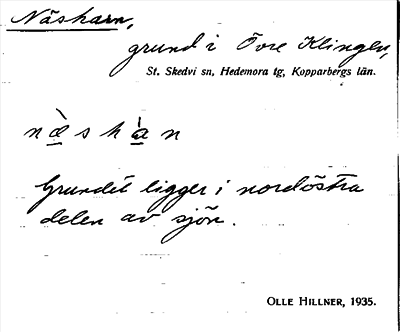 Näsharn,
grund i Övre Klingen,
St. Skedvi sn, Hedemora tg, Kopparbergs län.
næ̀shàn
Grundet ligger i nordöstra
delen av sjön.
OLLE HILLNER, 1935.